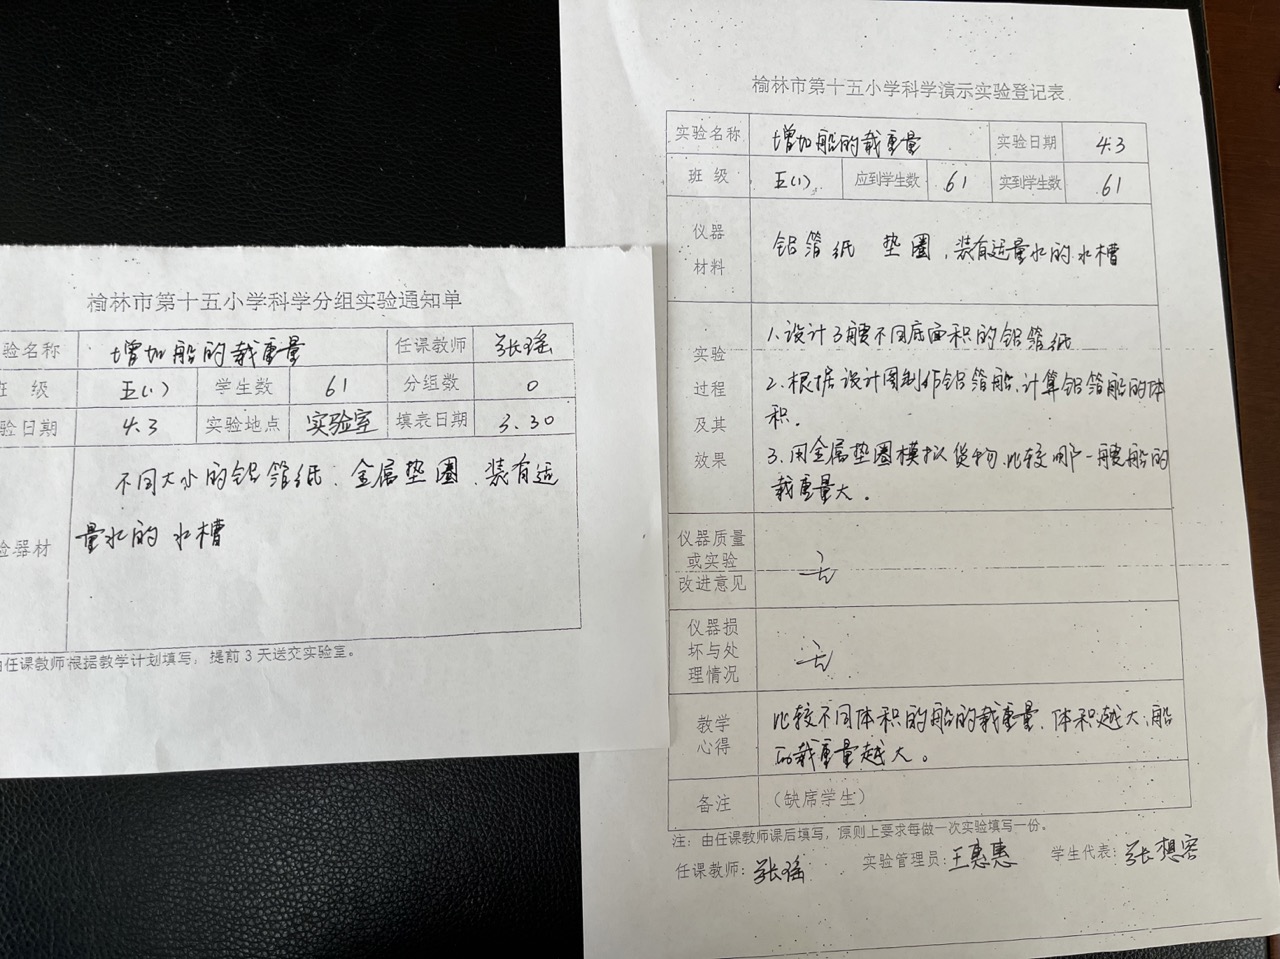 榆林市第十五小学科学分组实验通知单
验名称 增加船的载重量 任课教师 张瑶
班 级 五(1) 学生数 61 分组数 0
验日期 4.3 实验地点 实验室 填表日期 3.30
验器材 不同大小的铝箔纸、金属垫圈、装有适
量水的水槽
由任课教师根据教学计划填写，提前3天送交实验室。
榆林市第十五小学科学演示实验登记表
实验名称 增加船的载重量 实验日期 4.3
班 级 五(1) 应到学生数 61 实到学生数 61
仪器
材料
铝箔纸 垫圈、装有适量水的水槽
实验
过程
及其
效果
1.设计3艘不同底面积的铝箔纸
2.根据设计图制作铝箔船,计算铝箔船的体
积。
3.用金属垫圈模拟货物,比较哪一艘船的
载重量大。
仪器质量
或实验
改进意见
无
仪器损
坏与处
理情况
无
教学
心得
比较不同体积的船的载重量,体积越大,船
的载重量越大。
备注 （缺席学生）
注：由任课教师课后填写，原则上要求每做一次实验填写一份。
任课教师：张瑶 实验管理员：王惠惠 学生代表：张想容